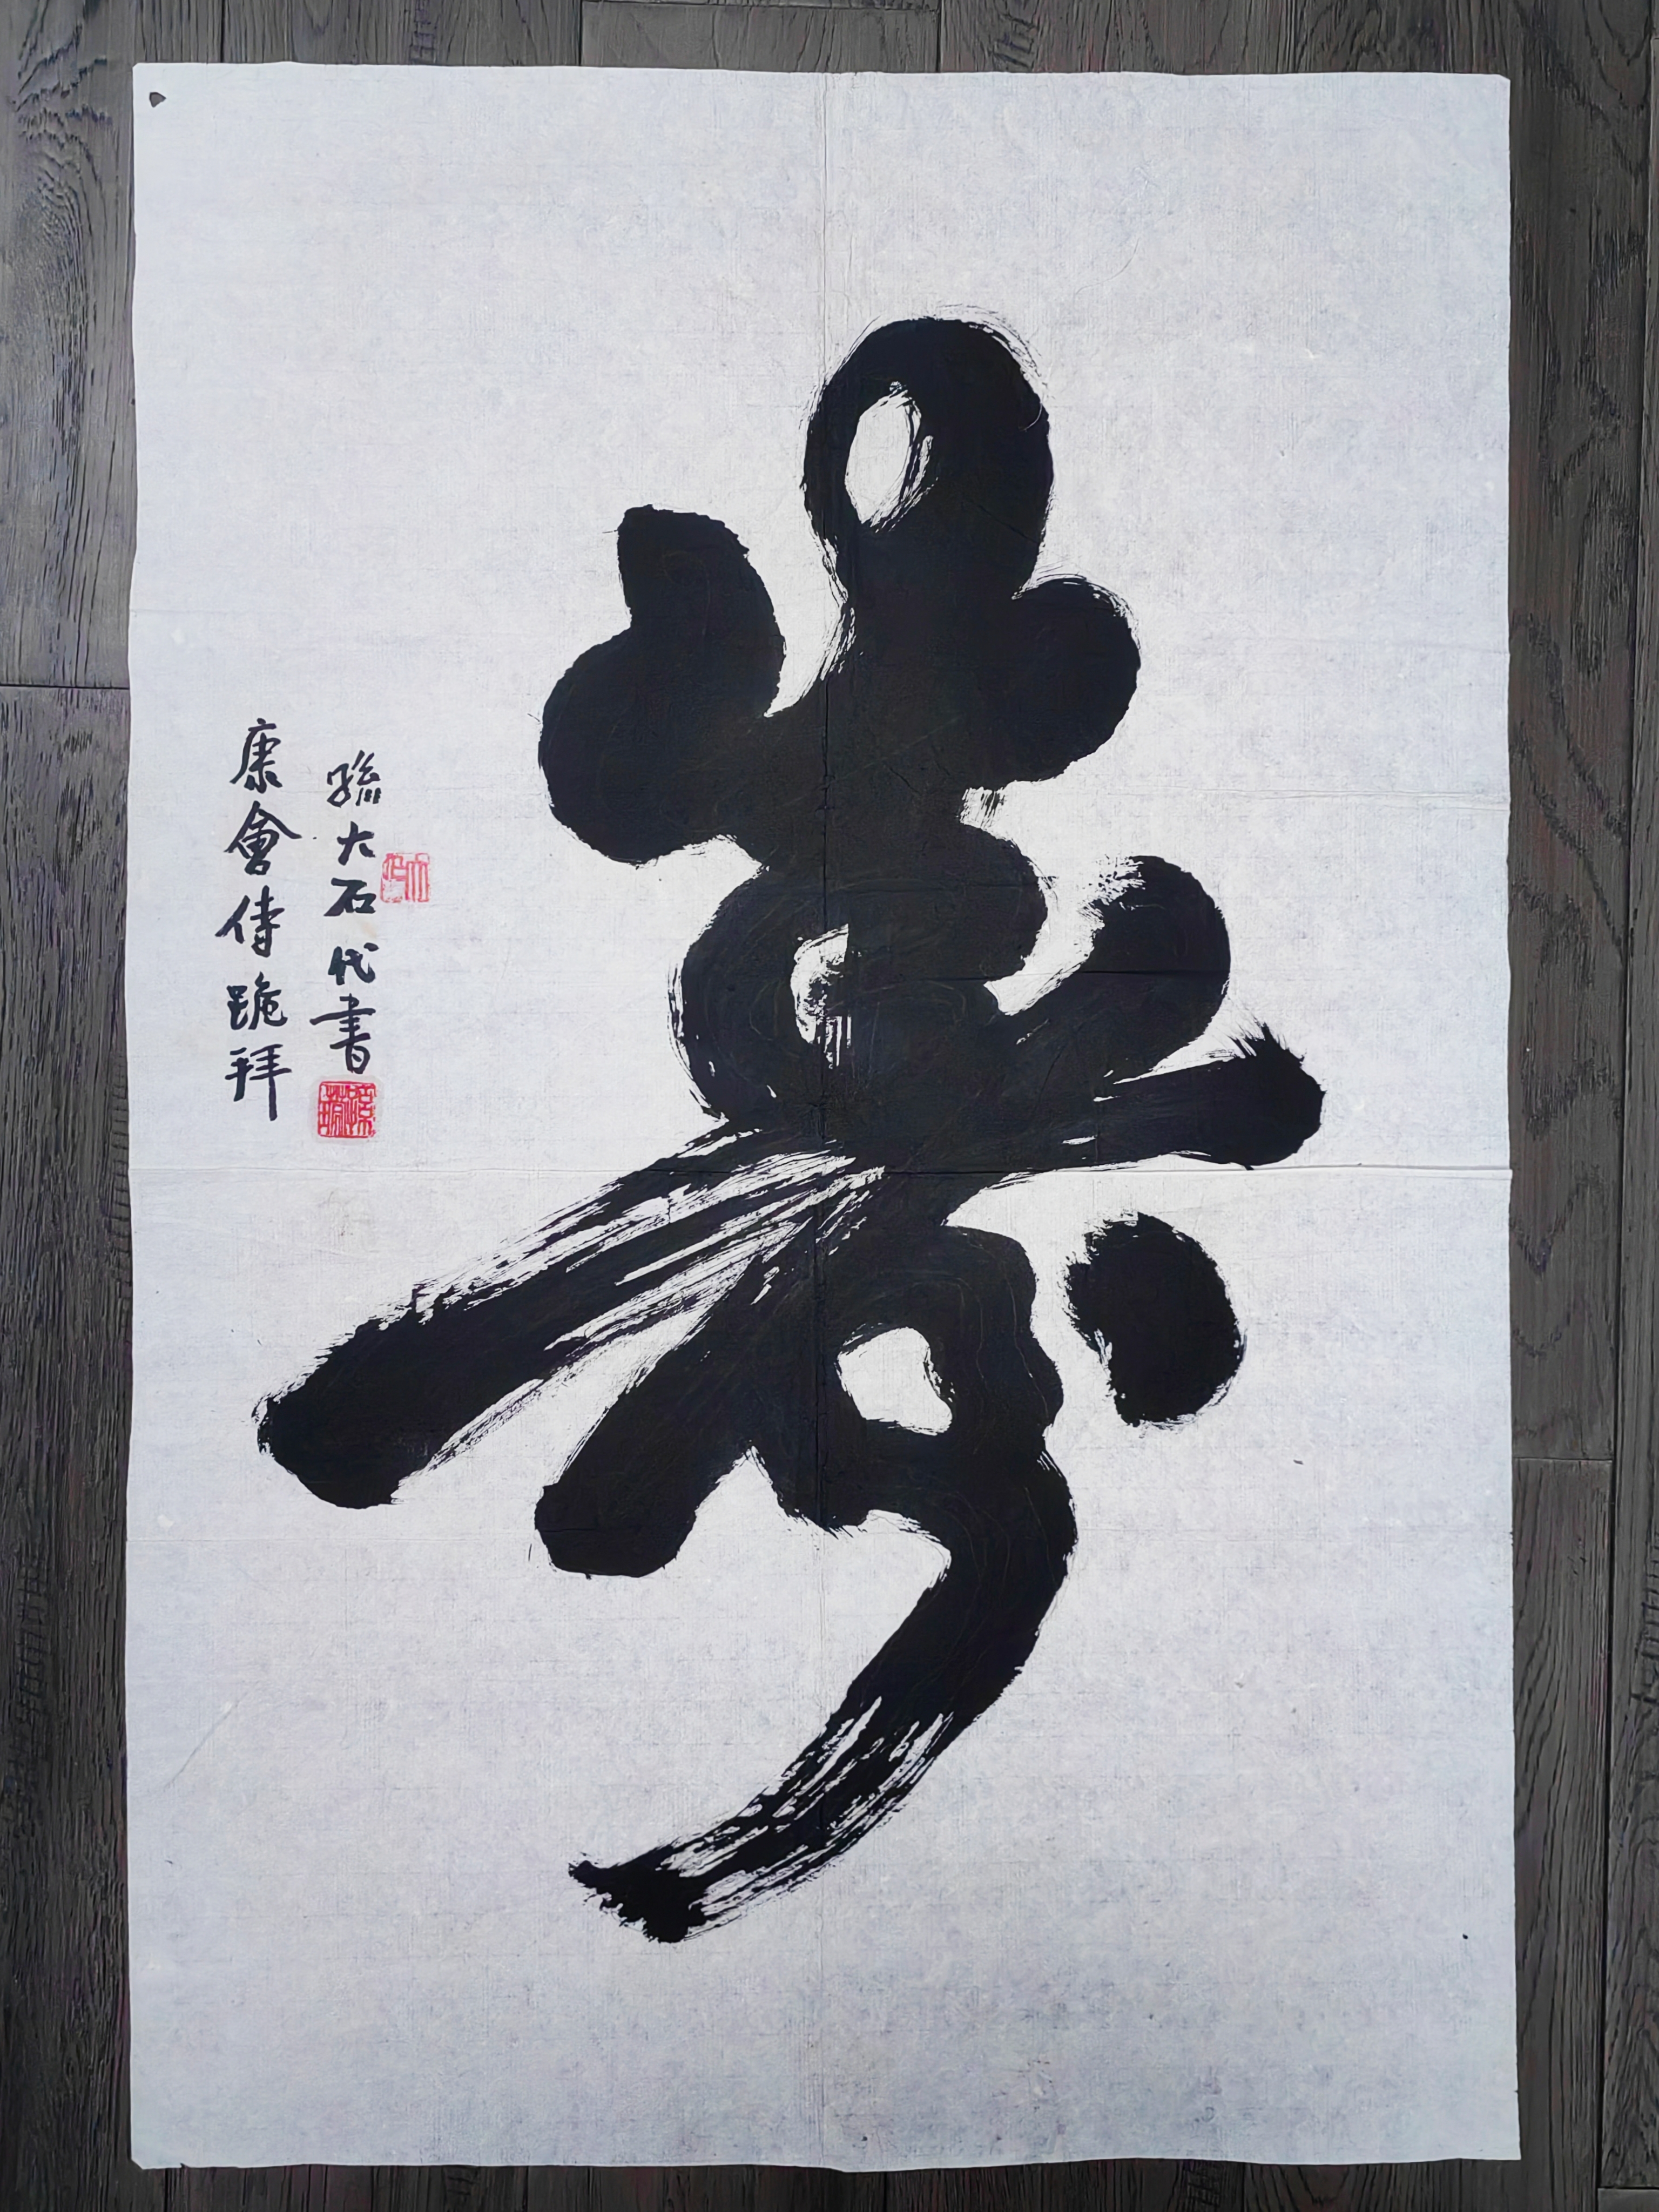 壽
孫大石代書
康會侍跪拜